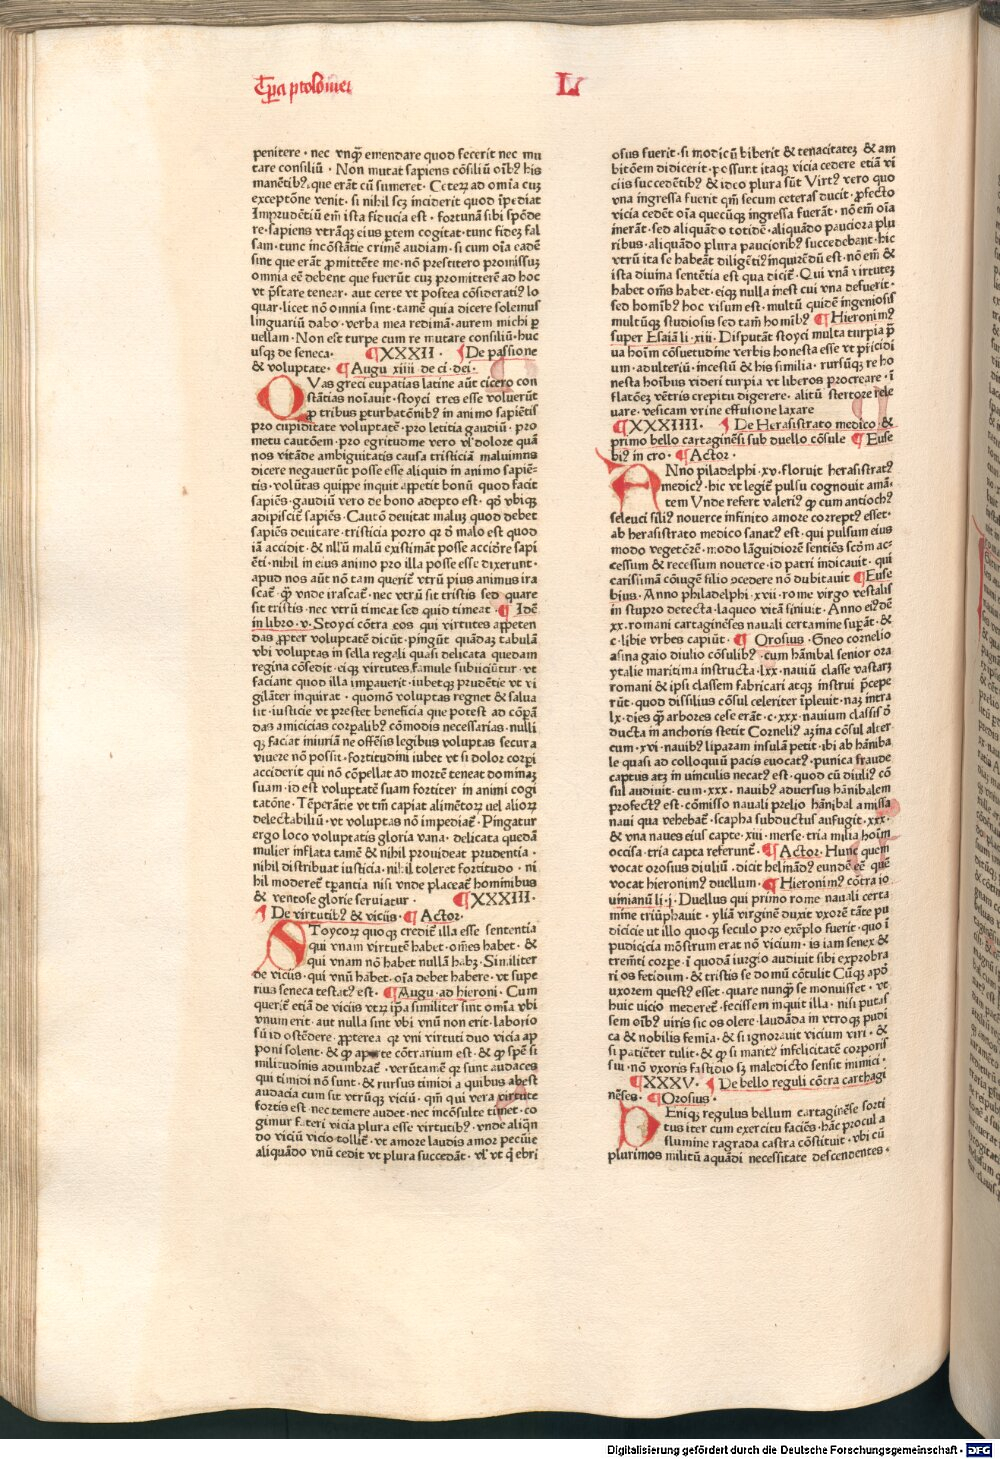 Tꝑa ptolomei
L
penitere · nec vnqͣ emendare quod fecerit nec mu
tare consiliū · Non mutat sapiens cōsiliū oībꝰ his
manētibꝰ, que erāt cū sumeret · Ceterꝝ ad omīa cuꝫ
exceptōne venit · si nihil scꝫ inciderit quod īpediat
Imprudētiū em̄ ista fiducia est · fortunā sibi spōde
re · sapiens vtrāqꝫ eius ꝑtem cogitat · tunc fideꝫ fal
sam · tunc incōstātie crimē audiam · si cum oīa eadē
sint que erāt ꝓmittēte me · nō prestitero promissuꝫ
omnia eē debent que fuerūt cuꝫ promitterē ad hoc
vt p̄stare tenear · aut certe vt postea cōsideratiꝰ lo
quar · licet nō omnia sint · tamē quia dicere solemus
linguariū dabo · verba mea redimā · aurem michi ꝑ
vellam · Non est turpe cum re mutare consiliū · huc
usqꝫ de seneca · ¶XXXII · ¶De passione
& voluptate · ¶Augu xiiii de ci · dei ·
QVas greci eupatias latine aūt cicero con
stātias noīauit · stoyci tres esse voluerūt
ꝓ tribus ꝑturbatōnibꝰ in animo sapiētis
pro cupiditate voluptatē · pro letitia gaudiū · pro
metu cautōem · pro egritudine vero vl̓ dolore quā
nos vitāde ambiguitatis causa tristiciā maluimus
dicere negauerūt posse esse aliquid in animo sapiē-
tis · volūtas quippe inquit appetit bonū quod facit
sapiēs · gaudiū vero de bono adepto est · qd̓ vbiqꝫ
adipiscit̄ sapiēs · Cautō deuitat maluꝫ quod debet
sapiēs deuitare · tristicia porro qꝛ d̓ malo est quod
iā accidit · & nll̓ū malū existimāt posse accidr̄e sapi
ēti · nihil in eius animo pro illa posse esse dixerunt ·
apud nos aūt nō tam querit̄ vtrū pius animus ira
scat̄ · qͣ vnde irascat̄ · nec vtrū sit tristis sed quare
sit tristis · nec vtrū timeat sed quid timeat · ¶ Idē
in libro · v · Stoyci cōtra eos qui virtutes appeten
das ꝓpter voluptatē dicūt · pingūt quādaꝫ tabulā
vbi voluptas in sella regali quasi delicata quedam
regina cōsedit · eiqꝫ virtutes famule subiiciūtur · vt
faciant quod illa imꝑauerit · iubetqꝫ prudētie vt vi
gilāter inquirat · quomō voluptas regnet & salua
sit · iusticie vt prestet beneficia que potest ad cōꝑā
das amicicias corꝑalibꝰ cōmodis necessarias · nulli
qꝫ faciat iniuriā ne offēsis legibus voluptas secura
viuere nō possit · fortitudini iubet vt si dolor corꝑi
acciderit qui nō cōpellat ad mortē teneat dominaꝫ
suam · id est voluptatē suam fortiter in animi cogi
tatōne · Tēperātie vt tm̄ capiat alimētorꝫ uel aliorꝫ
delectabiliū · vt voluptas nō impediat̄ · Pingatur
ergo loco voluptatis gloria vana · delicata quedā
mulier inflata tamē & nihil prouideat prudentia ·
nihil distribuat iusticia · nihil toleret fortitudo · ni
hil moderet̄ tꝑantia nisi vnde placeat̄ hominibus
& ventose glorie seruiatur · ¶XXXIII ·
¶ De virtutibꝰ & viciis · ¶ Actor ·
SToycorꝫ quoqꝫ credit̄ illa esse sententia
qui vnam virtutē habet · om̄es habet · &
qui vnam nō habet nullā habꝫ · Similiter
de vicus · qui vnū habet · oīa debet habere · vt supe
rius seneca testatꝰ est · ¶Augu · ad hieroni · Cum
querit̄ etiā de viciis vtꝝ ip̄a similiter sint omīa vbi
vnum erit · aut nulla sint vbi vnū non erit · laborio
sū id ostēdere · ꝓpterea qꝛ vni virtuti duo vicia ap
poni solent · & qͣ aperte cōtrarium est · & qͣ spē si
militudinis adumbat̄ · verūtamē qꝛ sunt audaces
qui timidi nō sunt · & rursus timidi a quibus abest
audacia cum sit vtrūqꝫ viciū · qm̄ qui vera virtute
fortis est · nec temere audet · nec incōsulte timet · co
gimur fateri vicia plura esse virtutibꝰ · vnde aliqn̄
do viciū vicio tollit̄ · vt amore laudis amor pecūie
aliquādo vnū cedit vt plura succedāt · vl̓ vt q̄ ebri
osus fuerit · si modicū biberit & tenacitateꝫ & am
bitōem didicerit · possunt itaqꝫ vicia cedere etiā vi
ciis succedētibꝰ & ideo plura sūt Virtꝰ vero quo
vna ingressa fuerit qm̄ secum ceteras ducit · ꝓfecto
vicia cedēt oīa quecūqꝫ ingressa fuerāt · nō em̄ oīa
inerāt · sed aliquādo totidē · aliquādo pauciora plu
ribus · aliquādo plura paucioribꝰ succedebant · hic
vtrū ita se habeāt diligētiꝰ inquirēdū est · nō em̄ &
ista diuina sentētia est qua dicit̄ · Qui vnā virtuteꝫ
habet om̄s habet · eiqꝫ nulla inest cui vna defuerit ·
sed homībꝰ hoc visum est · multū quidē ingeniosis
multūqꝫ studiosis sed tam̄ homībꝰ ¶Hieronimꝰ
super Esaiā li · xiii · Disputāt stoyci multa turpia p̄
ua hoīm cōsuetudine verbis honesta esse vt p̄icidi
um · adulteriū · incestū & his similia · rursūqꝫ re ho
nesta hoībus videri turpia vt liberos procreare · ī
flatōeꝫ vētris crepitu digerere · aluū stertore rele
uare · vesicam vrine effusione laxare
¶XXXIIII · ¶ De Herasistrato medico &
primo bello cartaginēsi sub duello cōsule ¶Euse
biꝰ in cro · ¶Actor ·
ANno piladelphi · xv · floruit herasistratꝰ
medicꝰ · hic vt legit̄ pulsu cognouit amā-
tem Vnde refert valeriꝰ qͣ cum antiochꝰ
seleuci filiꝰ nouerce infinito amore correptꝰ esset ·
ab herasistrato medico sanatꝰ est · qui pulsum eius
modo vegetōrē · modo lāguidiorē sentiēs scd̓m ac-
cessum & recessum nouerce · id patri indicauit · qui
carissimā cōiugē filio ꝯcedere nō dubitauit ¶Euse
bius · Anno philadelphi · xvii · rome virgo vestalis
in stupro detecta · laqueo vitā finiuit · Anno eiꝰdē
xx · romani cartaginēses nauali certamine suꝑāt · &
c · libie vrbes capiūt · ¶ Orosius · Gneo cornelio
asina gaio diulio cōsulibꝰ · cum hānibal senior ora
ytalie maritima instructa · lxx · nauiū classe vastarꝫ
romani & ipsi classem fabricari atqꝫ instrui p̄cepe
rūt · quod dissilius cōsul celeriter īpleuit · naꝫ intra
lx · dies qͣ arbores cese erāt · c · xxx · nauium classis d̓
ducta in anchoris stetit Corneliꝰ aꝫina cōsul alter
cum · xvi · nauibꝰ liparam insulā petit · ibi ab hāniba
le quasi ad colloquiū pacis euocatꝰ · punica fraude
captus atꝫ in uinculis necatꝰ est · quod cū diuliꝰ cō
sul audiuit · cum · xxx · nauibꝰ aduersus hānibalem
profectꝰ est · cōmisso nauali prelio hānibal amissa
naui qua vehebat̄ · scapha subductus aufugit · xxx ·
& vna naues eius capte · xiii · merse · tria milia hoīm
occisa · tria capta referunt̄ · ¶Actor · Hunc quem
vocat orosius diuliū · dicit helinādꝰ eundē eē quē
vocat hieronimꝰ duellum · ¶Hieronimꝰ cōtra io
uinianū li · j · Duellus qui primo rome nauali certa
mine triūphauit · yliā virginē duxit vxorē tāte pu
dicicie ut illo quoqꝫ seculo pro exēplo fuerit · quo ī
pudicicia mōstrum erat nō vicium · is iam senex &
trem̄ti corpe · ī quodā iurgio audiuit sibi exprobra
ri os fetidum · & tristis se domū cōtulit Cūqꝫ apd̓
uxorem questꝰ esset · quare nunqͣ se monuisset · vt
huic uicio mederet̄ · fecissem inquit illa · nisi putas
sem oībꝰ uiris sic os olere · laudāda in vtroqꝫ pudi
ca & nobilis femīa · & si ignorauit vicium viri · &
si patiēter tulit · & qͣ si maritꝰ infelicitatē corporis
sui · nō vxoris fastidio sꝫ maledicto sensit inimici ·
¶XXXV · ¶ De bello reguli cōtra carthagi
nēses · ¶Orosius ·
DEniqꝫ regulus bellum cartaginēse sorti
tus iter cum exercitu faciēs · hāc procul a
flumine ragrada castra cōstituit · vbi cū
plurimos militū aquādi necessitate descendentes ·
Digitalisierung gefördert durch die Deutsche Forschungsgemeinschaft · DFG